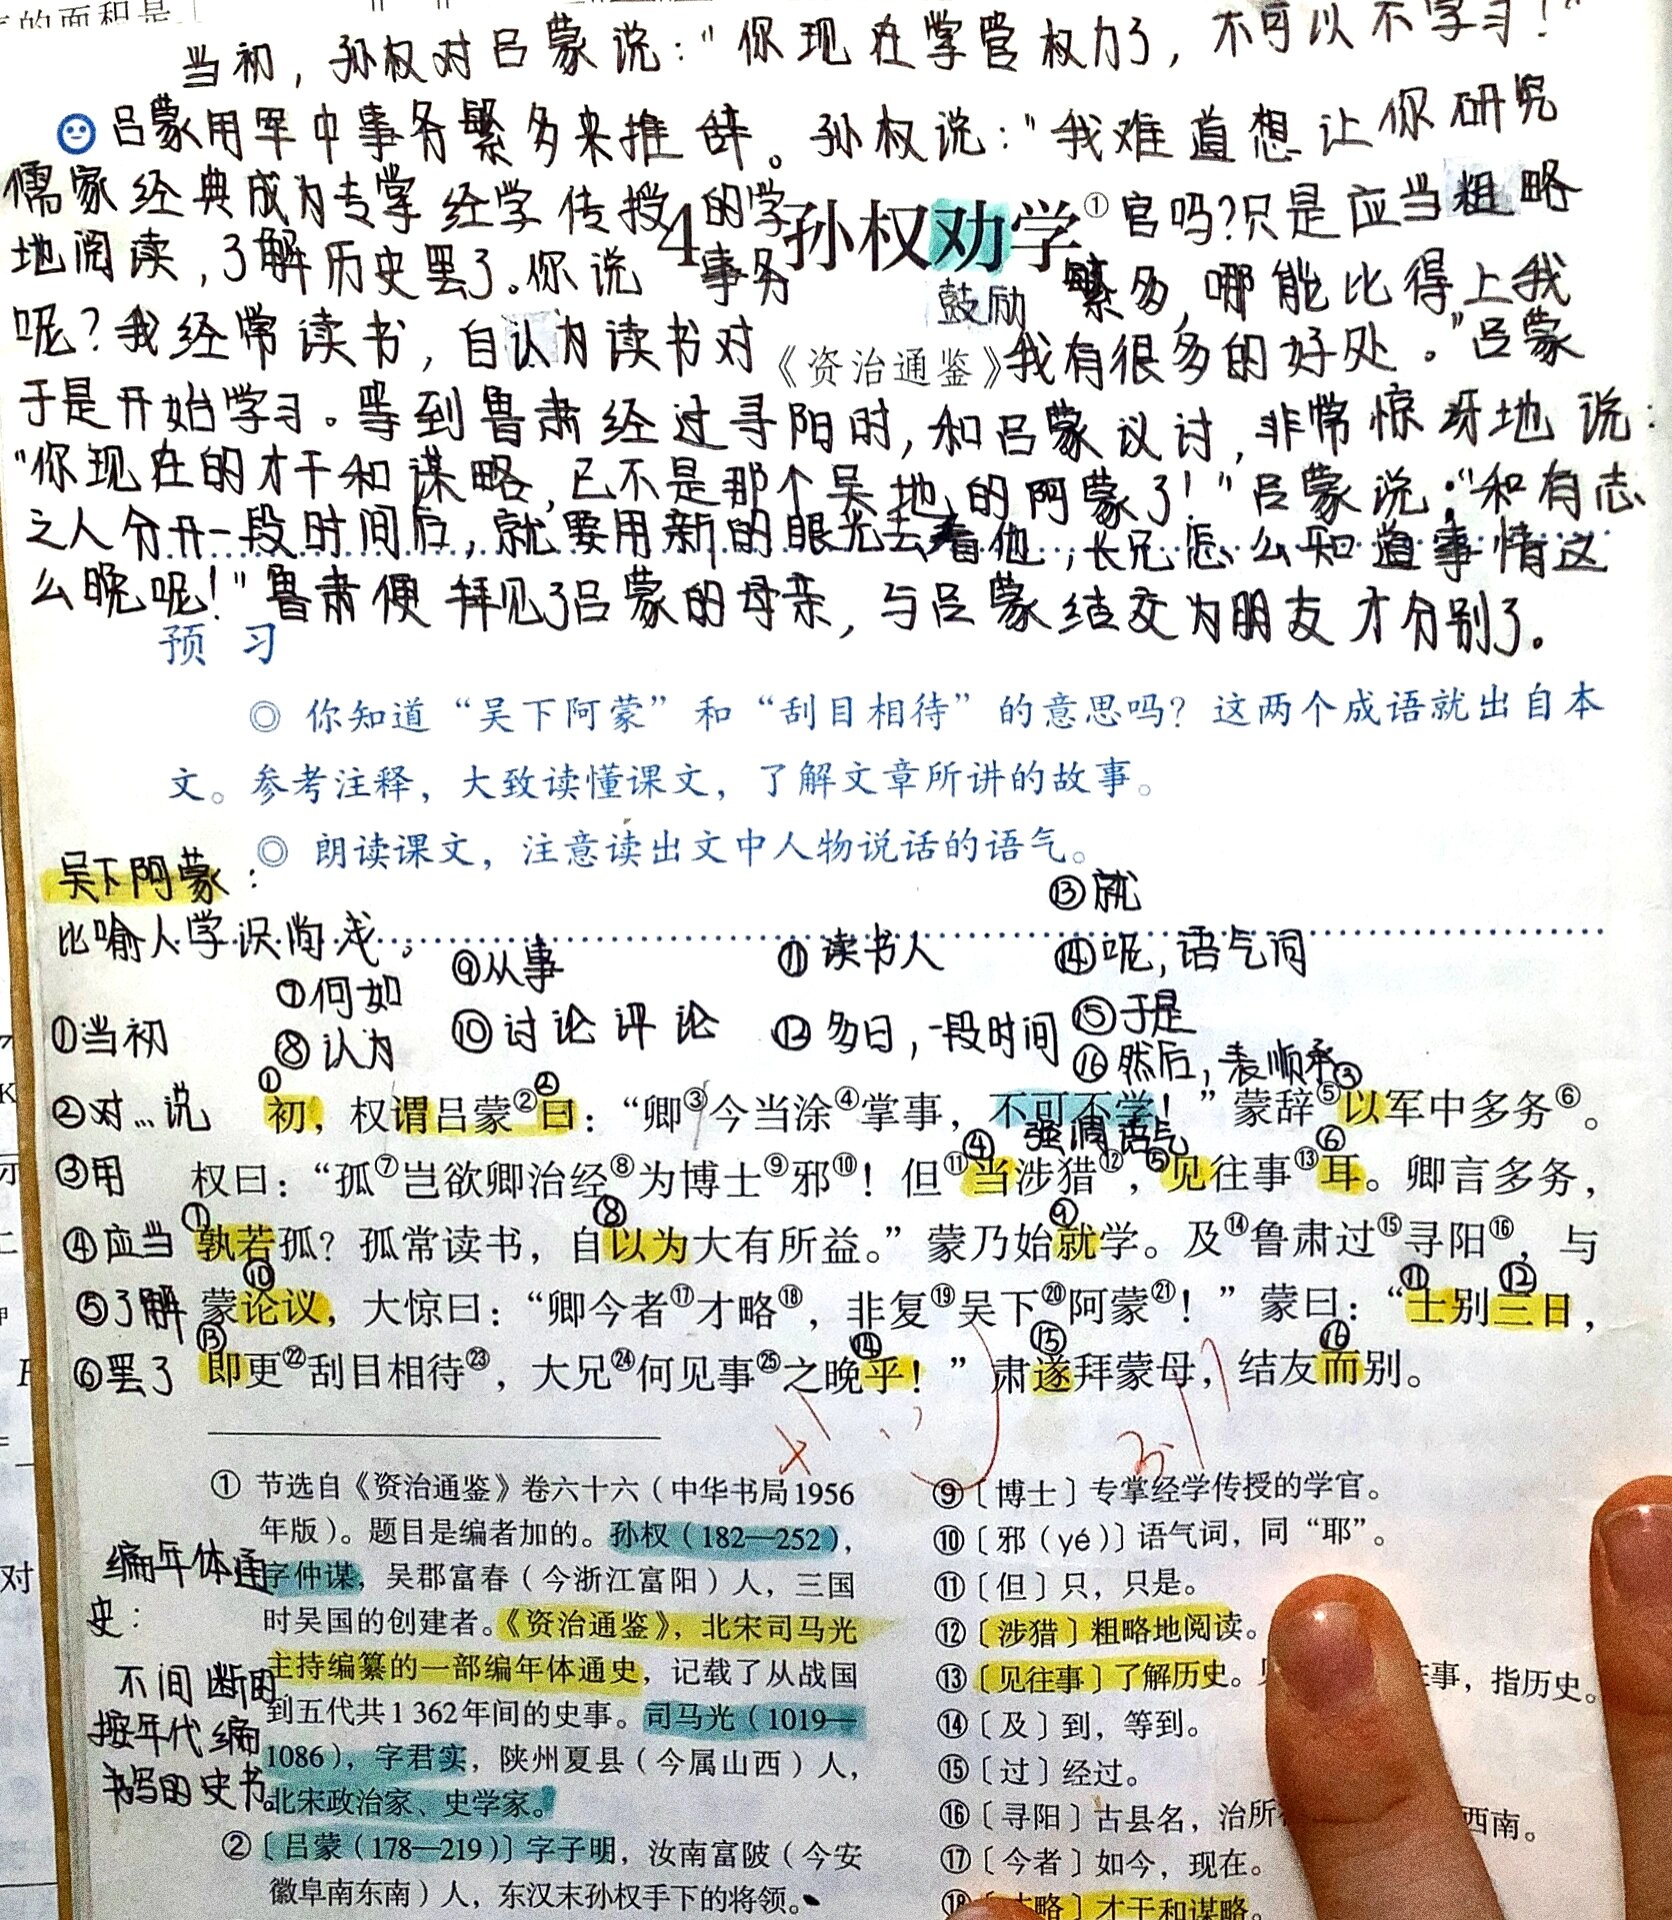 的面积是
当初，孙权对吕蒙说：“你现在掌管权力了，不可以不学习！”
吕蒙用军中事务繁多来推辞。孙权说：“我难道想让你研究
儒家经典成为专掌经学传授的学官吗？只是应当粗略
4 孙权劝学①
地阅读，了解历史罢了。你说事务繁多，哪能比得上我
鼓励
呢？我经常读书，自认为读书对我有很多的好处。”吕蒙
《资治通鉴》
于是开始学习。等到鲁肃经过寻阳时，和吕蒙议讨，非常惊讶地说：
“你现在的才干和谋略，已不是那个吴地的阿蒙了！”吕蒙说：“和有志
之人分开一段时间后，就要用新的眼光去看他，长兄怎么知道事情这
么晚呢！”鲁肃便拜见了吕蒙的母亲，与吕蒙结交为朋友才分别了。
预 习
◎ 你知道“吴下阿蒙”和“刮目相待”的意思吗？这两个成语就出自本
文。参考注释，大致读懂课文，了解文章所讲的故事。
◎ 朗读课文，注意读出文中人物说话的语气。
吴下阿蒙：
比喻人学识尚浅。
⑬就
⑨从事
⑪读书人
⑭呢，语气词
⑦何如
①当初
⑧认为
⑩讨论评论
⑫多日，一段时间
⑮于是
⑯然后，表顺承
②对…说
初，权谓吕蒙②曰：“卿③今当涂④掌事，不可不学！”蒙辞⑤以军中多务⑥。
强调语气
③用
权曰：“孤⑦岂欲卿治经⑧为博士⑨邪⑩！但⑪当涉猎⑫，见往事⑬耳。卿言多务，
④应当
孰若孤？孤常读书，自以为大有所益。”蒙乃始就学。及⑭鲁肃过⑮寻阳⑯，与
⑤了解
蒙论议，大惊曰：“卿今者⑰才略⑱，非复⑲吴下⑳阿蒙㉑！”蒙曰：“士别三日，
⑥罢了
即更㉒刮目相待㉓，大兄㉔何见事㉕之晚乎！”肃遂拜蒙母，结友而别。
① 节选自《资治通鉴》卷六十六（中华书局1956
年版）。题目是编者加的。孙权（182—252），
字仲谋，吴郡富春（今浙江富阳）人，三国
时吴国的创建者。《资治通鉴》，北宋司马光
主持编纂的一部编年体通史，记载了从战国
到五代共1 362年间的史事。司马光（1019—
1086），字君实，陕州夏县（今属山西）人，
北宋政治家、史学家。
② 〔吕蒙（178—219）〕字子明，汝南富陂（今安
徽阜南东南）人，东汉末孙权手下的将领。
编年体通
史：
不间断的
按年代编
书写的史书。
⑨〔博士〕专掌经学传授的学官。
⑩〔邪（yé）〕语气词，同“耶”。
⑪〔但〕只，只是。
⑫〔涉猎〕粗略地阅读。
⑬〔见往事〕了解历史。 事，指历史。
⑭〔及〕到，等到。
⑮〔过〕经过。
⑯〔寻阳〕古县名，治所 西南。
⑰〔今者〕如今，现在。
略〕才干和谋略。
对